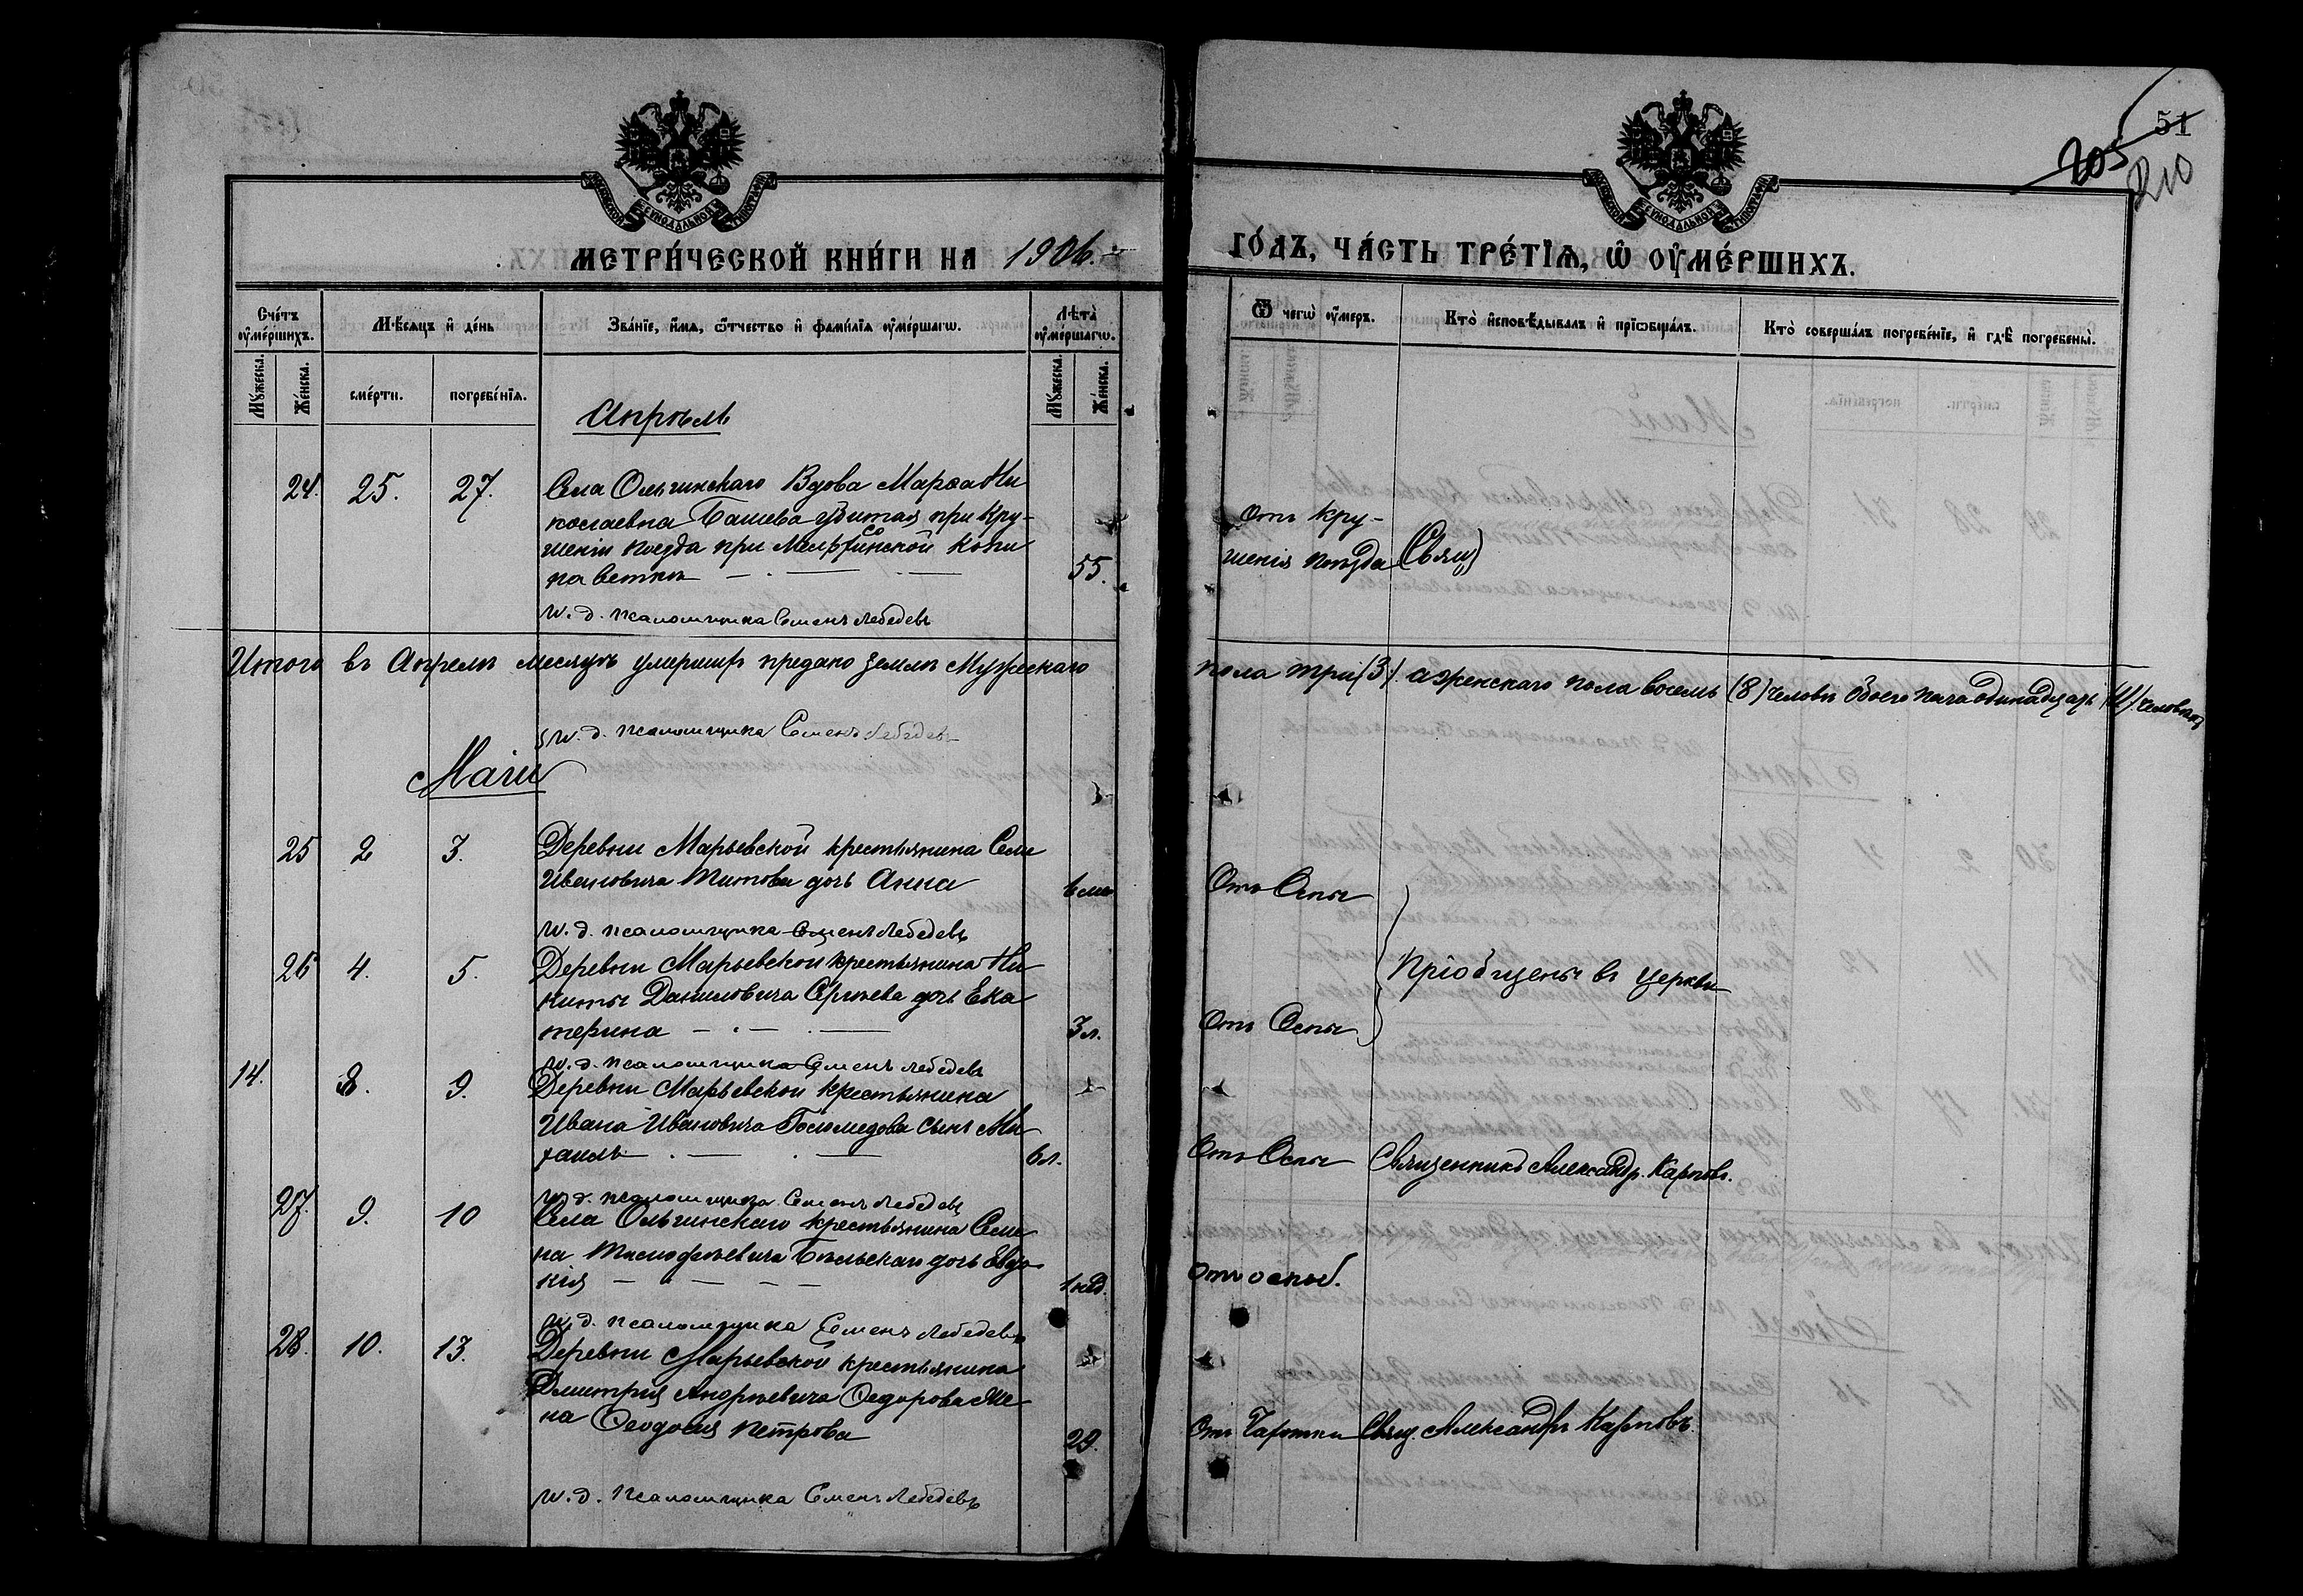 51
205
210
МЕТРИ́ЧЕСКОЙ КНИ́ГИ НА 1906.
ГО́ДЪ, ЧА́СТЬ ТРЕ́ТЇѦ, Ѡ ОУ҆МЕ́РШИХЪ.
Сче́тъ оу҆ме́ршихъ.
Мѣ́сѧцъ и҆ де́нь
Зва́нїе, и҆́мѧ, ѻ҆́тчество и҆ фами́лїѧ оу҆ме́ршагѡ.
Лѣ́та оу҆ме́ршагѡ.
Ѿ чегѡ̀ оу҆́меръ.
Кто̀ и҆сповѣ́дывалъ и҆ прїѡбща́лъ.
Кто̀ соверша́лъ погребе́нїе, и҆ гдѣ̀ погребены̀.
Мꙋ́жеска.
Же́нска.
сме́рти.
погребе́нїѧ.
Мꙋ́жеска.
Же́нска.
Апрѣль
24. 25. 27. Села Ольгинскаго Вдова Марѳа Ни
колаевна Башева убитая при кру-
шеніи поезда при
на веткѣ 55.
Отъ кру-
шенія поѣзда (Свящ)
И. д. псаломщика Семенъ Лебедевъ
Итого въ Апрелѣ месяцѣ умершихъ предано землѣ Мужескаго
пола три (3). а женскаго пола восемь (8) человѣ обоего пола одинадцать (11) человѣкъ
И. д. псаломщика Семенъ Лебедевъ
Маій
25 2 3. Деревни Марьевской крестьянина Семе
Ивановича Титова дочь Анна 6 ме
Отъ Оспы
И. д. псаломщика Семенъ Лебедевъ
26 4. 5. Деревни Марьевской крестьянина Ни
киты Даниловича Сергѣева дочь Ека
терина 3 л.
Отъ Оспы
Пріобщены въ церкви
И. д. псаломщика Семенъ Лебедевъ
14. 8. 9. Деревни Марьевской крестьянина
Ивана Ивановича сынъ Ми
хаилъ 6 л.
Отъ Оспы Священникъ Александр. Карповъ.
И. д. псаломщика Семенъ Лебедевъ
27. 9. 10 Села Ольгинскаго крестьянина Семе
на Тимофѣевича Бѣльскаго дочь Евдо
кія 1 нед.
Отъ оспы.
И. д. псаломщика Семенъ Лебедевъ
28. 10. 13. Деревни Марьевской крестьянина
Дмитрія Андрѣевича Ѳедорова Же
на Ѳеодосія Петрова 29.
Отъ Чахотки Свящ. Александръ Карповъ.
И. д. Псаломщика Семенъ Лебедевъ